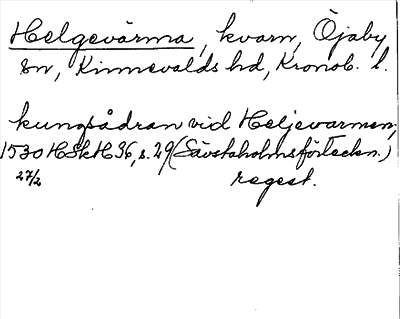 Helgevärma, kvarn, Öjaby
sn, Kinnevalds hd, Kronob. l.
kungsådran vid Heljevarmen,
1530 HSkH 36, s. 29 (Sävstaholmsförteckn.)
27/2 regest.